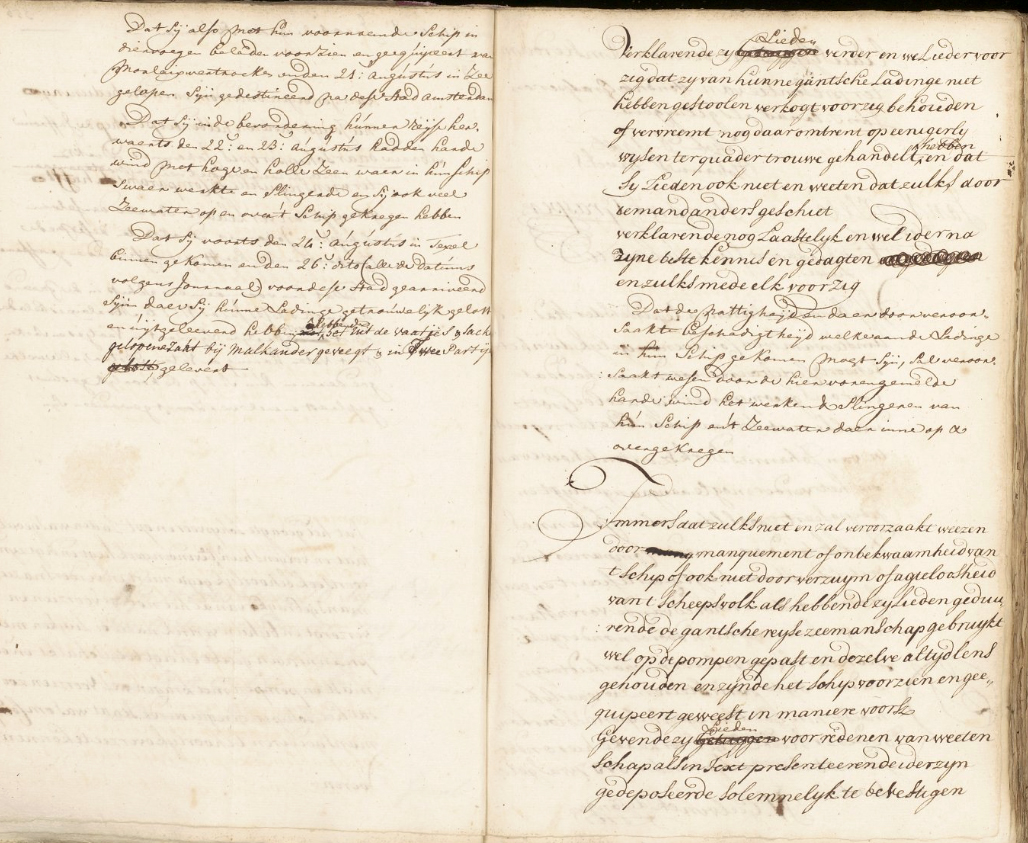 Dat Sij also met hun voornoemde Schip in
dier voegen beladen voorzien en geequipeert van
en den 21: Augustus in Zee
gelopen Sijn gedestineerd na dese Stad Amsterdam
Dat Sij in de bevordering hunner reijse her„
waerts den 22: en 23: Augustus hadden harde
wind met hoge en holle Zeen waer in hun Schip
Swaer werkte en Slingerde en Sij ook veel
Zeewater op en over 't Schip gekregen hebben
Dat Sij voorts den 24: Augustus in Texel
binnen gekomen en den 26: dito (alle de Datums
volgens Journaal) voor dese Stad gearriveerd
Sijn daer Sij hunne Ladinge getrouwelijk gelost
en uijtgeleverd hebben het uit de vaatjes & Sacke
gelopene Zakt bij Malkander geveegt & in Twee Partije
gelevert
Lieden
Verklarende zy verder en we Lieder voor
zig dat zy van hunne gantsche Ladinge niet
hebben gestoolen verkogt voor zig behouden
of vervreemt nog daar omtrent op eenigerly
hebben
wysen ter quader trouwe gehandelt, en dat
Sy Lieden ook niet en weeten dat zulks door
iemand anders geschiet
verklarende nog Laastelyk en wel ider na
zyne beste kennis en gedagten
en zulks mede elk voor zig
Dat de nattigheyd en daer door veroor„
saakte beschadigtheyd welke aan de Ladinge
in hun Schip gekomen mogt Sij, Sal veroor„
: saakt wesen door de hier voren gemelde
harde wind het werken & Slingeren van
hun Schip en 't Zeewater daer inne op &
overgekregen
Immers dat zulks niet en zal veroorzaakt weezen
door manquement of onbekwaamheid van
t Schip of ook niet door verzuym of agteloosheid
van t Scheepsvolk als hebbende zy Lieden geduu„
: rende de gantsche reyse zeemanschap gebruykt
wel op de pompen gepast en dezelve altyd lens
gehouden en zynde het Schip voorzien en gee„
quipeert geweest in maniere voorsz
Lieden
Gevende zy voor redenen van weeten
schap als in Text presenteerende ider zyn
gedeposeerde Solemnelyk te bevestigen